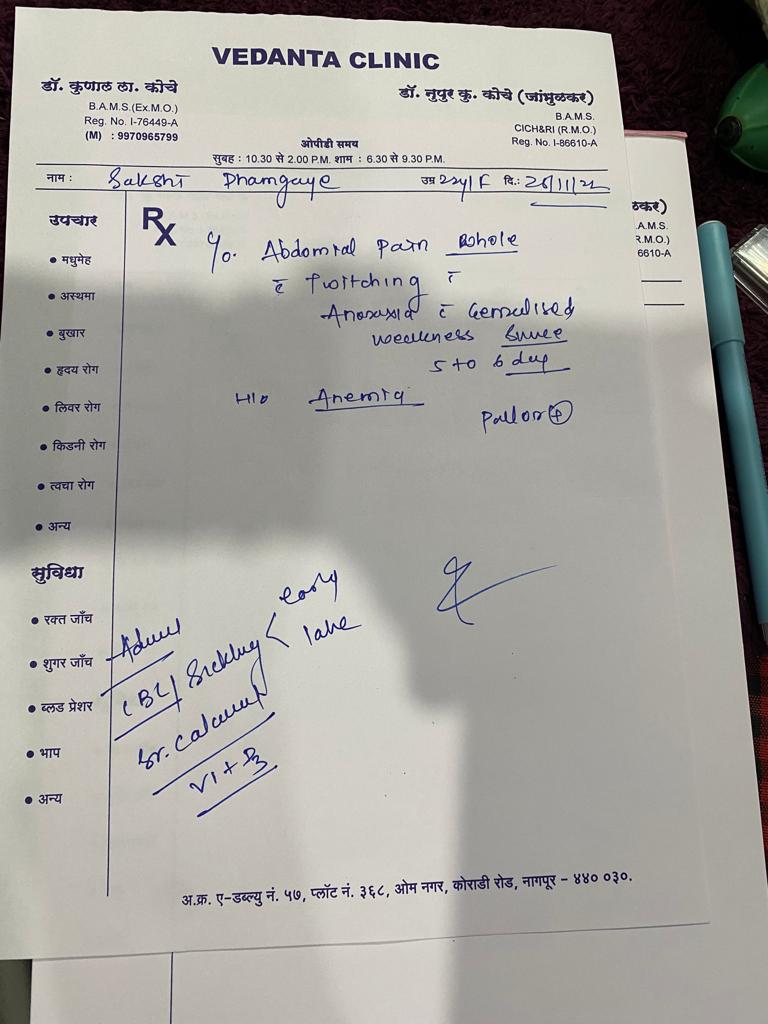 VEDANTA CLINIC
डॉ. कुणाल ला. कोचे
B.A.M.S.(Ex.M.O.)
Reg. No. I-76449-A
(M) : 9970965799
डॉ. नुपुर कु. कोचे (जांभुळकर)
B.A.M.S.
CICH&RI (R.M.O.)
Reg. No. I-86610-A
ओपीडी समय
सुबह : 10.30 से 2.00 P.M. शाम : 6.30 से 9.30 P.M.
नाम : Sakshi Dhamgaye उम्र 22y/F दि.: 26/11/22
उपचार
• मधुमेह
• अस्थमा
• बुखार
• हृदय रोग
• लिवर रोग
• किडनी रोग
• त्वचा रोग
• अन्य
सुविधा
• रक्त जाँच
• शुगर जाँच
• ब्लड प्रेशर
• भाप
• अन्य
Rx
C/o. Abdominal Pain
c̄ Twitching c̄
Anorexia c̄ Generalised
weakness Since
5 to 6 day
H/o Anemia
Pallor ⊕
Advice
CBC Sickling < early
late
Sr. Calcium
Vit B
अ.क्र. ए-डब्ल्यु नं. ५७, प्लॉट नं. ३६८, ओम नगर, कोराडी रोड, नागपूर - ४४० ०३०.
ठकर)
.A.M.S.
R.M.O.)
6610-A